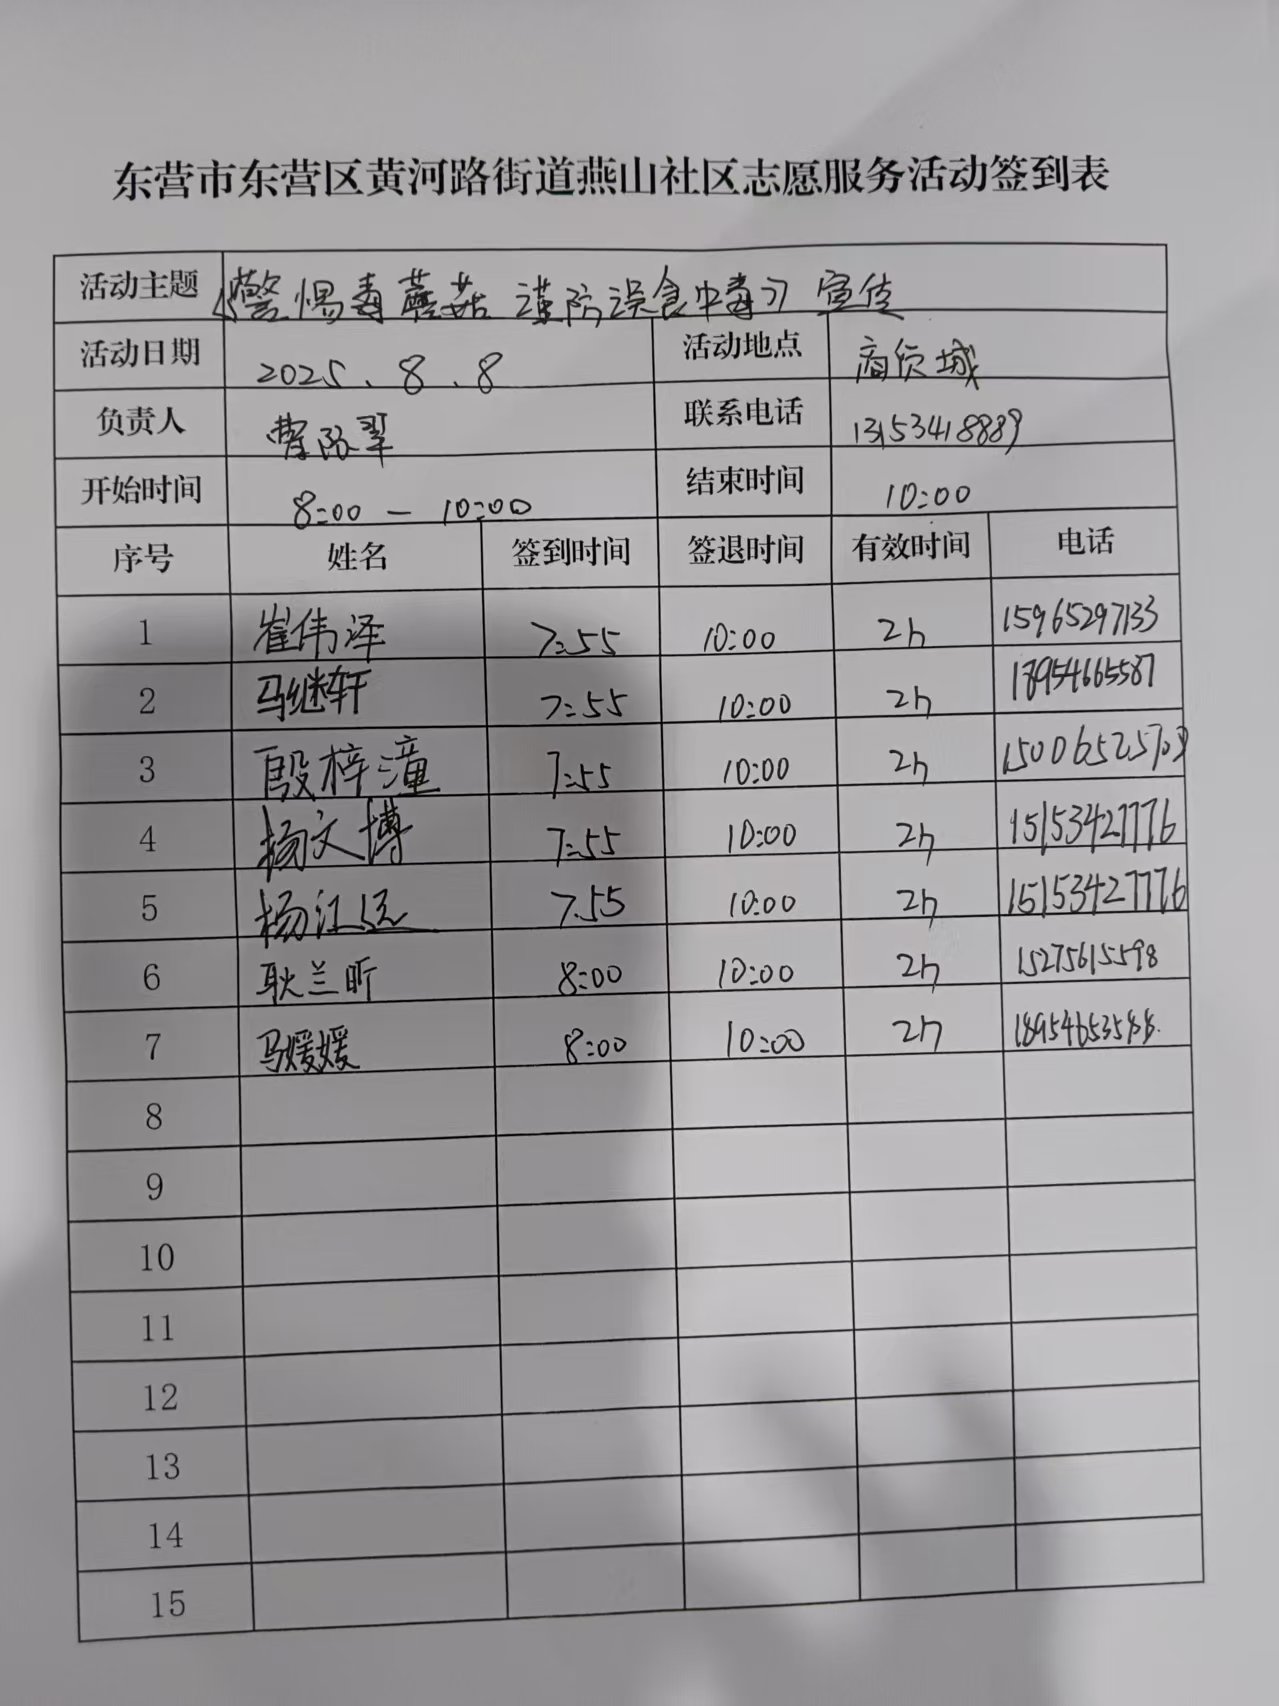 东营市东营区黄河路街道燕山社区志愿服务活动签到表
活动主题 《警惕毒蘑菇 谨防误食中毒》宣传
活动日期 2025.8.8 活动地点 商贸城
负责人 联系电话 13153418889
开始时间 8:00 — 10:00 结束时间 10:00
序号 姓名 签到时间 签退时间 有效时间 电话
1 崔伟泽 7:55 10:00 2h 15965297133
2 马继轩 7:55 10:00 2h 18954665587
3 殷梓潼 7:55 10:00 2h
4 杨文博 7:55 10:00 2h 15153427776
5 7.55 10:00 2h 15153427776
6 耿兰昕 8:00 10:00 2h 15275615598
7 马媛媛 8:00 10:00 2h
8
9
10
11
12
13
14
15